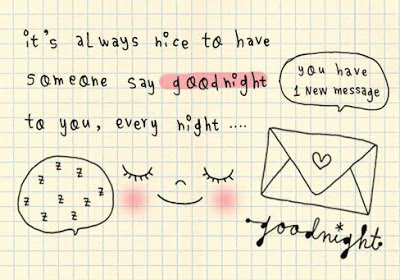 it's always nice to have
someone say goodnight
to you, every night ....
you have
1 New message
z z z
z z z
z z z
z z
goodnight